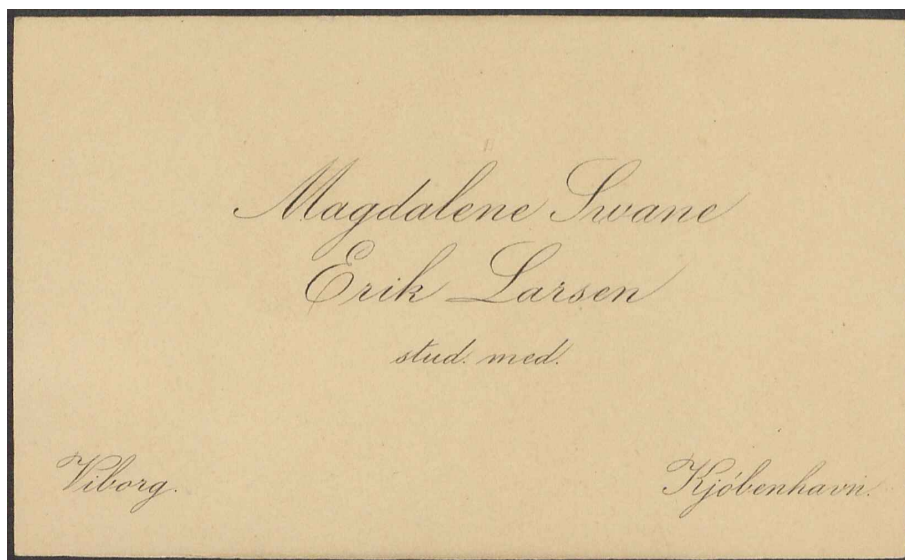 Magdalene Swane
Erik Larsen
stud. med.
Viborg.
Kjöbenhavn.